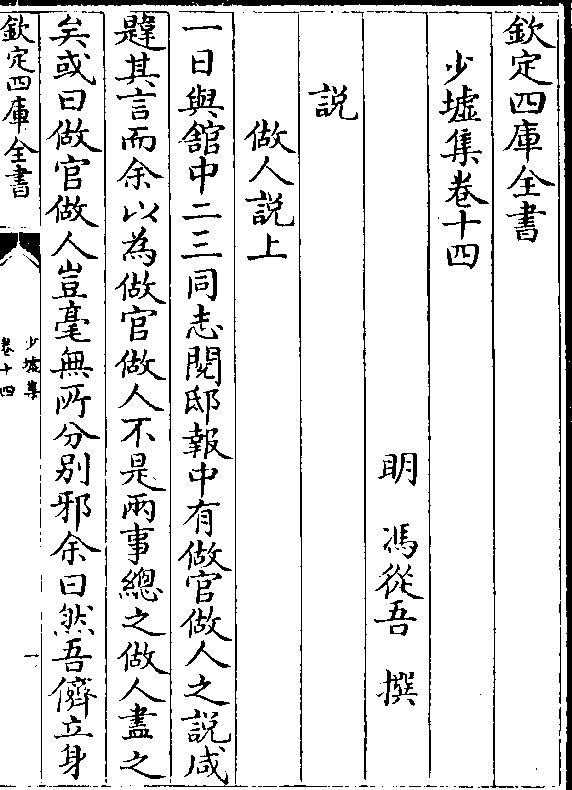 欽定四庫全書
少墟集卷十四
明 馮從吾 撰
説
做人説上
一日與舘中二三同志閱邸報中有做官做人之説咸
韙其言而余以為做官做人不是兩事總之做人盡之
矣或曰做官做人豈毫無所分别邪余曰然吾儕立身
欽定四庫全書
少墟集
卷十四
一